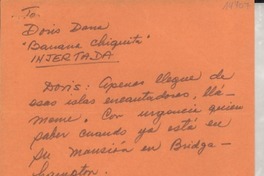 To.
Doris Dana
"Banana Chiquita"
INJERTADA
Doris: Apenas llegue de
esas islas encantadoras, llá-
meme. Con urgencia quiero
saber cuando ya está en
su mansión en Bridge-
hampton.